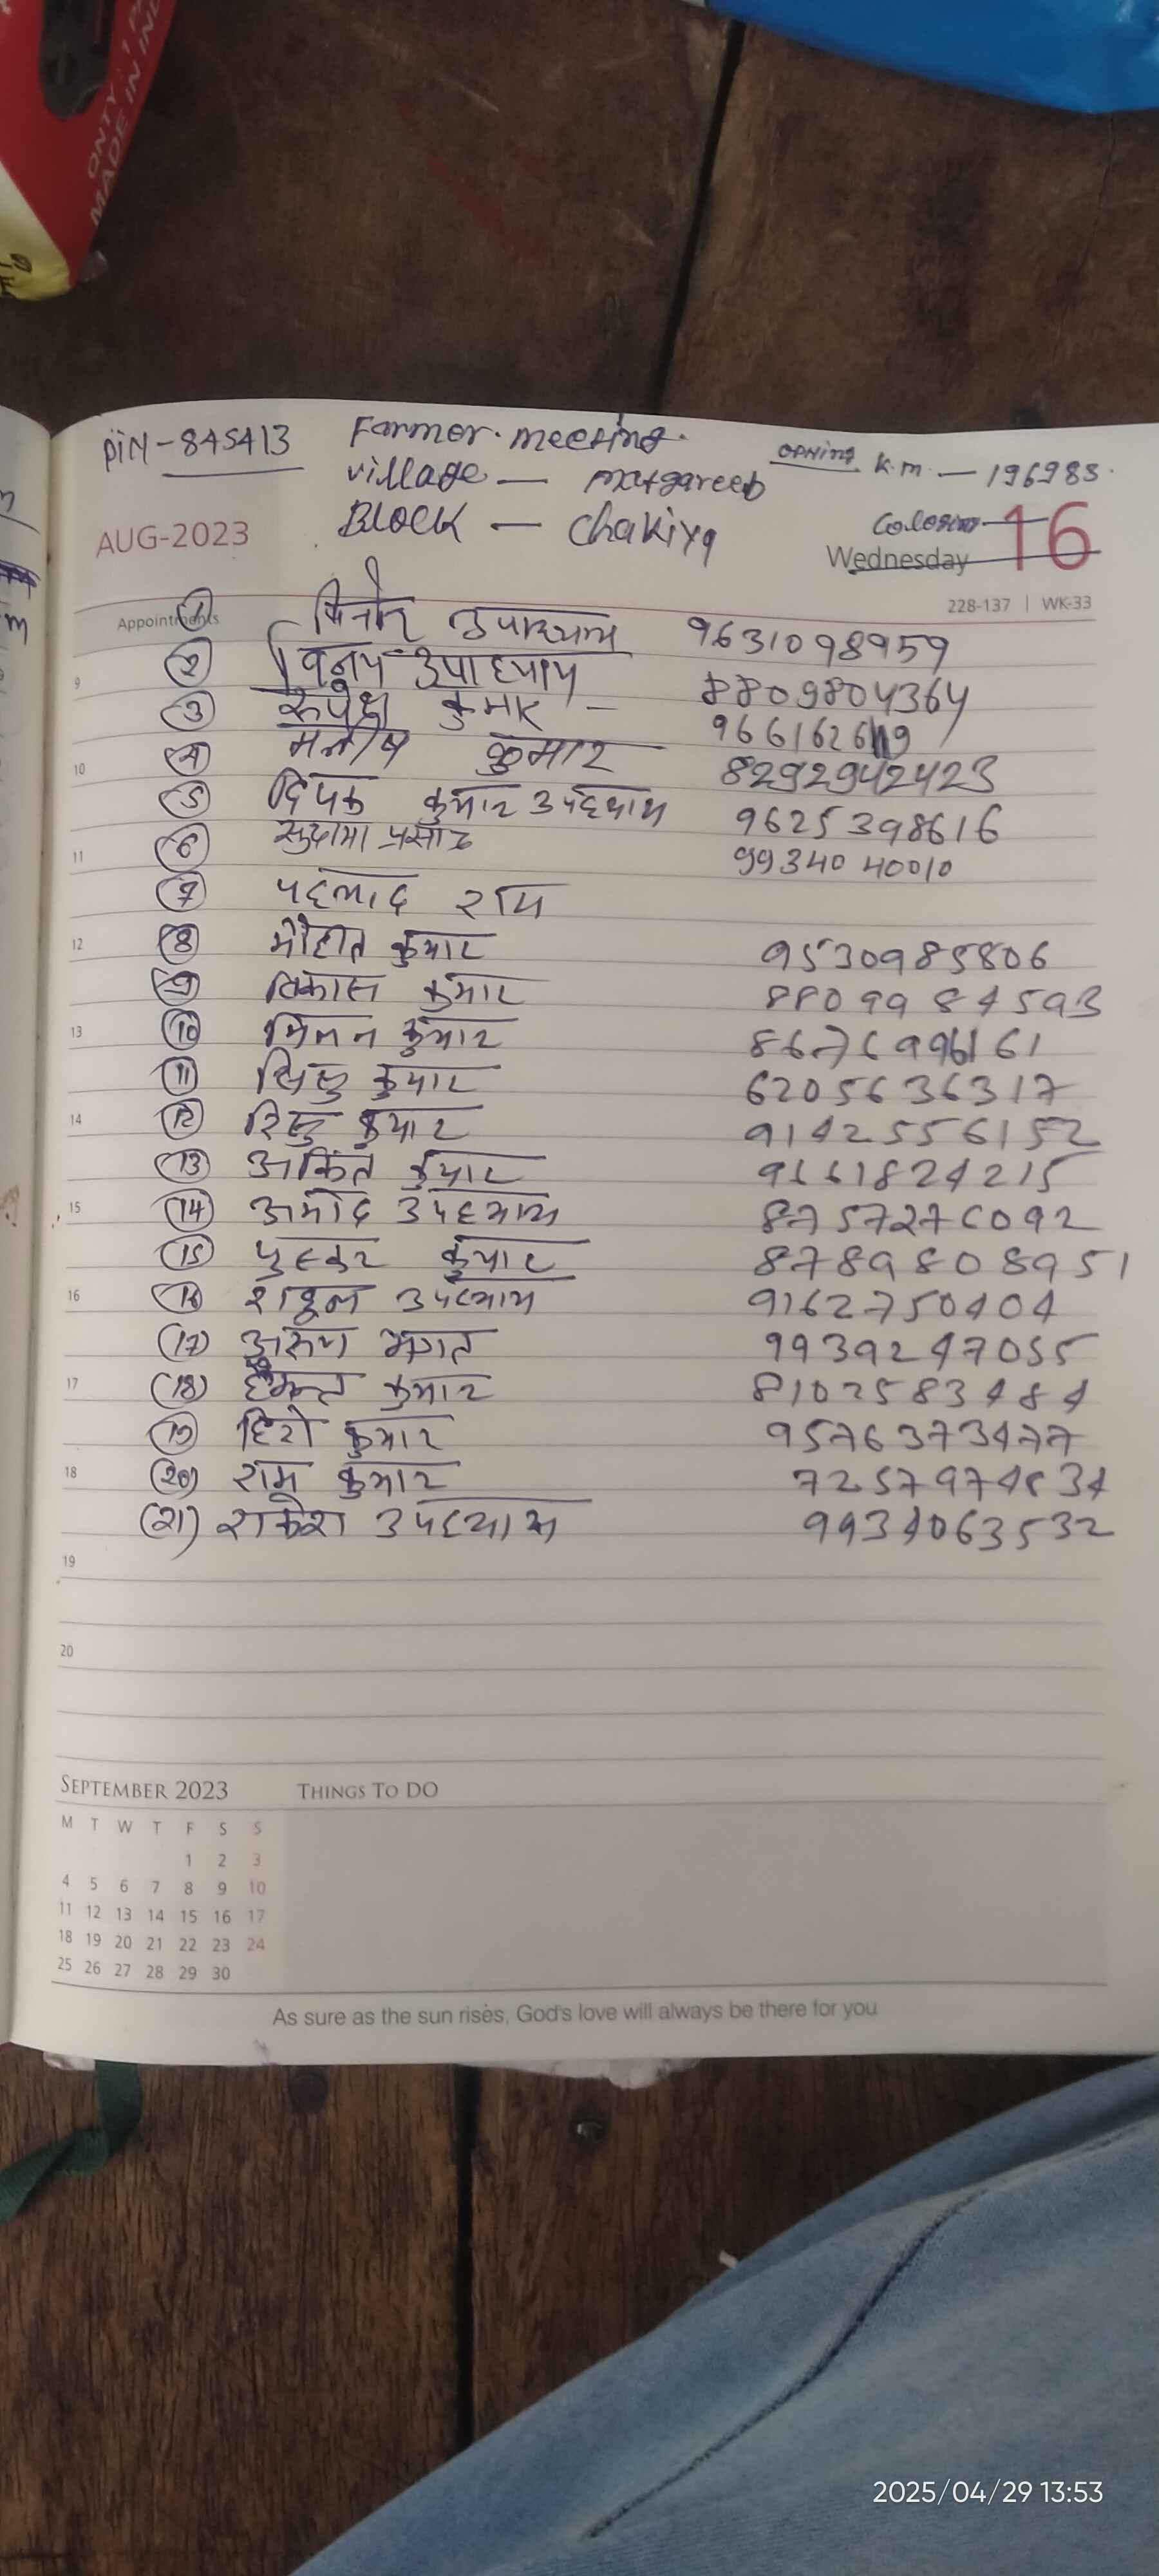 ONTY
MADE IN IND
PiN-845413 Farmer. meeting.
village — matgareeb
opning K.m. — 196985.
Block — Chakiya
AUG-2023
16
Wednesday
228-137 | WK-33
Appointments
① उपाध्याय 9631098959
② विनय उपाध्याय 8809804364
③ रुपेश कुमार — 966162619
④ मनीष कुमार 8292942423
⑤ दिपक कुमार उपध्याय 9625398616
⑥ सुदामा प्रसाद 9934040010
⑦ पहलाद राय
⑧ मोहीत कुमार 9530985806
⑨ विकास कुमार 8809984593
⑩ मिलन कुमार
⑪ कुमार 6205636317
⑫ कुमार 9142556152
⑬ अंकित कुमार 9661824215
⑭ अमोद उपध्याय 8757276092
⑮ पुस्कर कुमार 8789808951
⑯ राहूल उपध्याय 9162750404
(17) अरुण भगत 9939247055
(18) हेमन्त कुमार 8102583484
⑲ हिरो कुमार 9576373477
(20) राम कुमार
(21) राकेश उपध्याय 9934063532
9
10
11
12
13
14
15
16
17
18
19
20
SEPTEMBER 2023 THINGS TO DO
M T W T F S S
1 2 3
4 5 6 7 8 9 10
11 12 13 14 15 16 17
18 19 20 21 22 23 24
25 26 27 28 29 30
As sure as the sun rises, God's love will always be there for you
2025/04/29 13:53